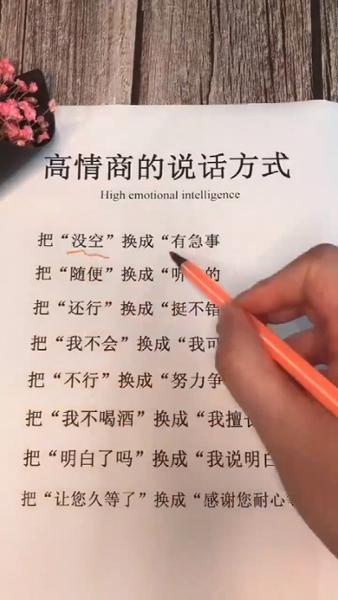 高情商的说话方式
High emotional intelligence
把“没空”换成“有急事
把“随便”换成“听 的
把“还行”换成“挺不错
把“我不会”换成“我可
把“不行”换成“努力争
把“我不喝酒”换成“我擅长
把“明白了吗”换成“我说明白
把“让您久等了”换成“感谢您耐心等